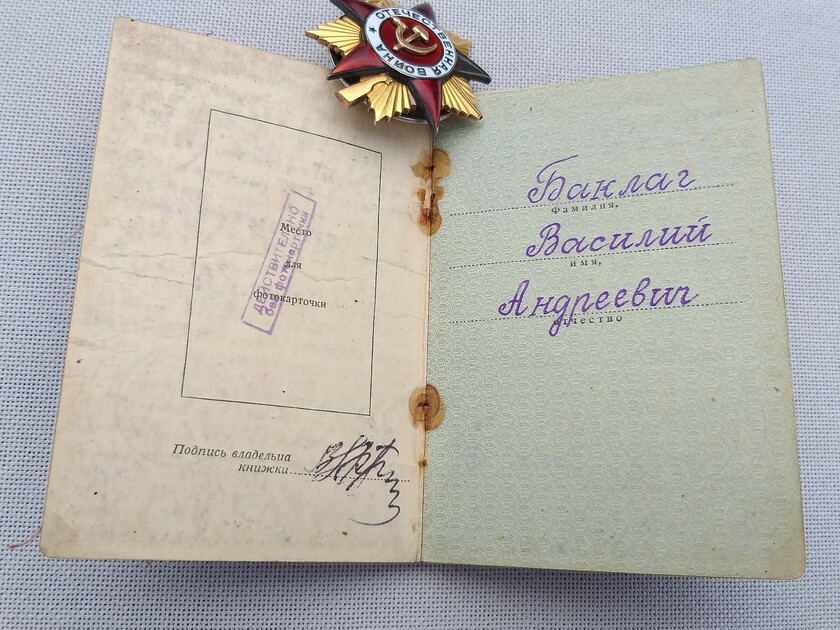 ОТЕЧЕСТВЕННАЯ ВОЙНА
Место
для
фотокарточки
ДЕЙСТВИТЕЛЬНО
без фотокарточки
Подпись владельца
книжки
Баклаг
Фамилия,
Василий
имя,
Андреевич
отчество